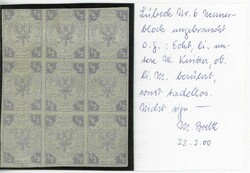 Lübeck Nr. 6 Neuner-
block ungebraucht
o.g.: Echt, li. un-
tere M. Kinke, ob.
li. M. berührt,
sonst tadellos.
Nicht sign. —
M.
22.2.00